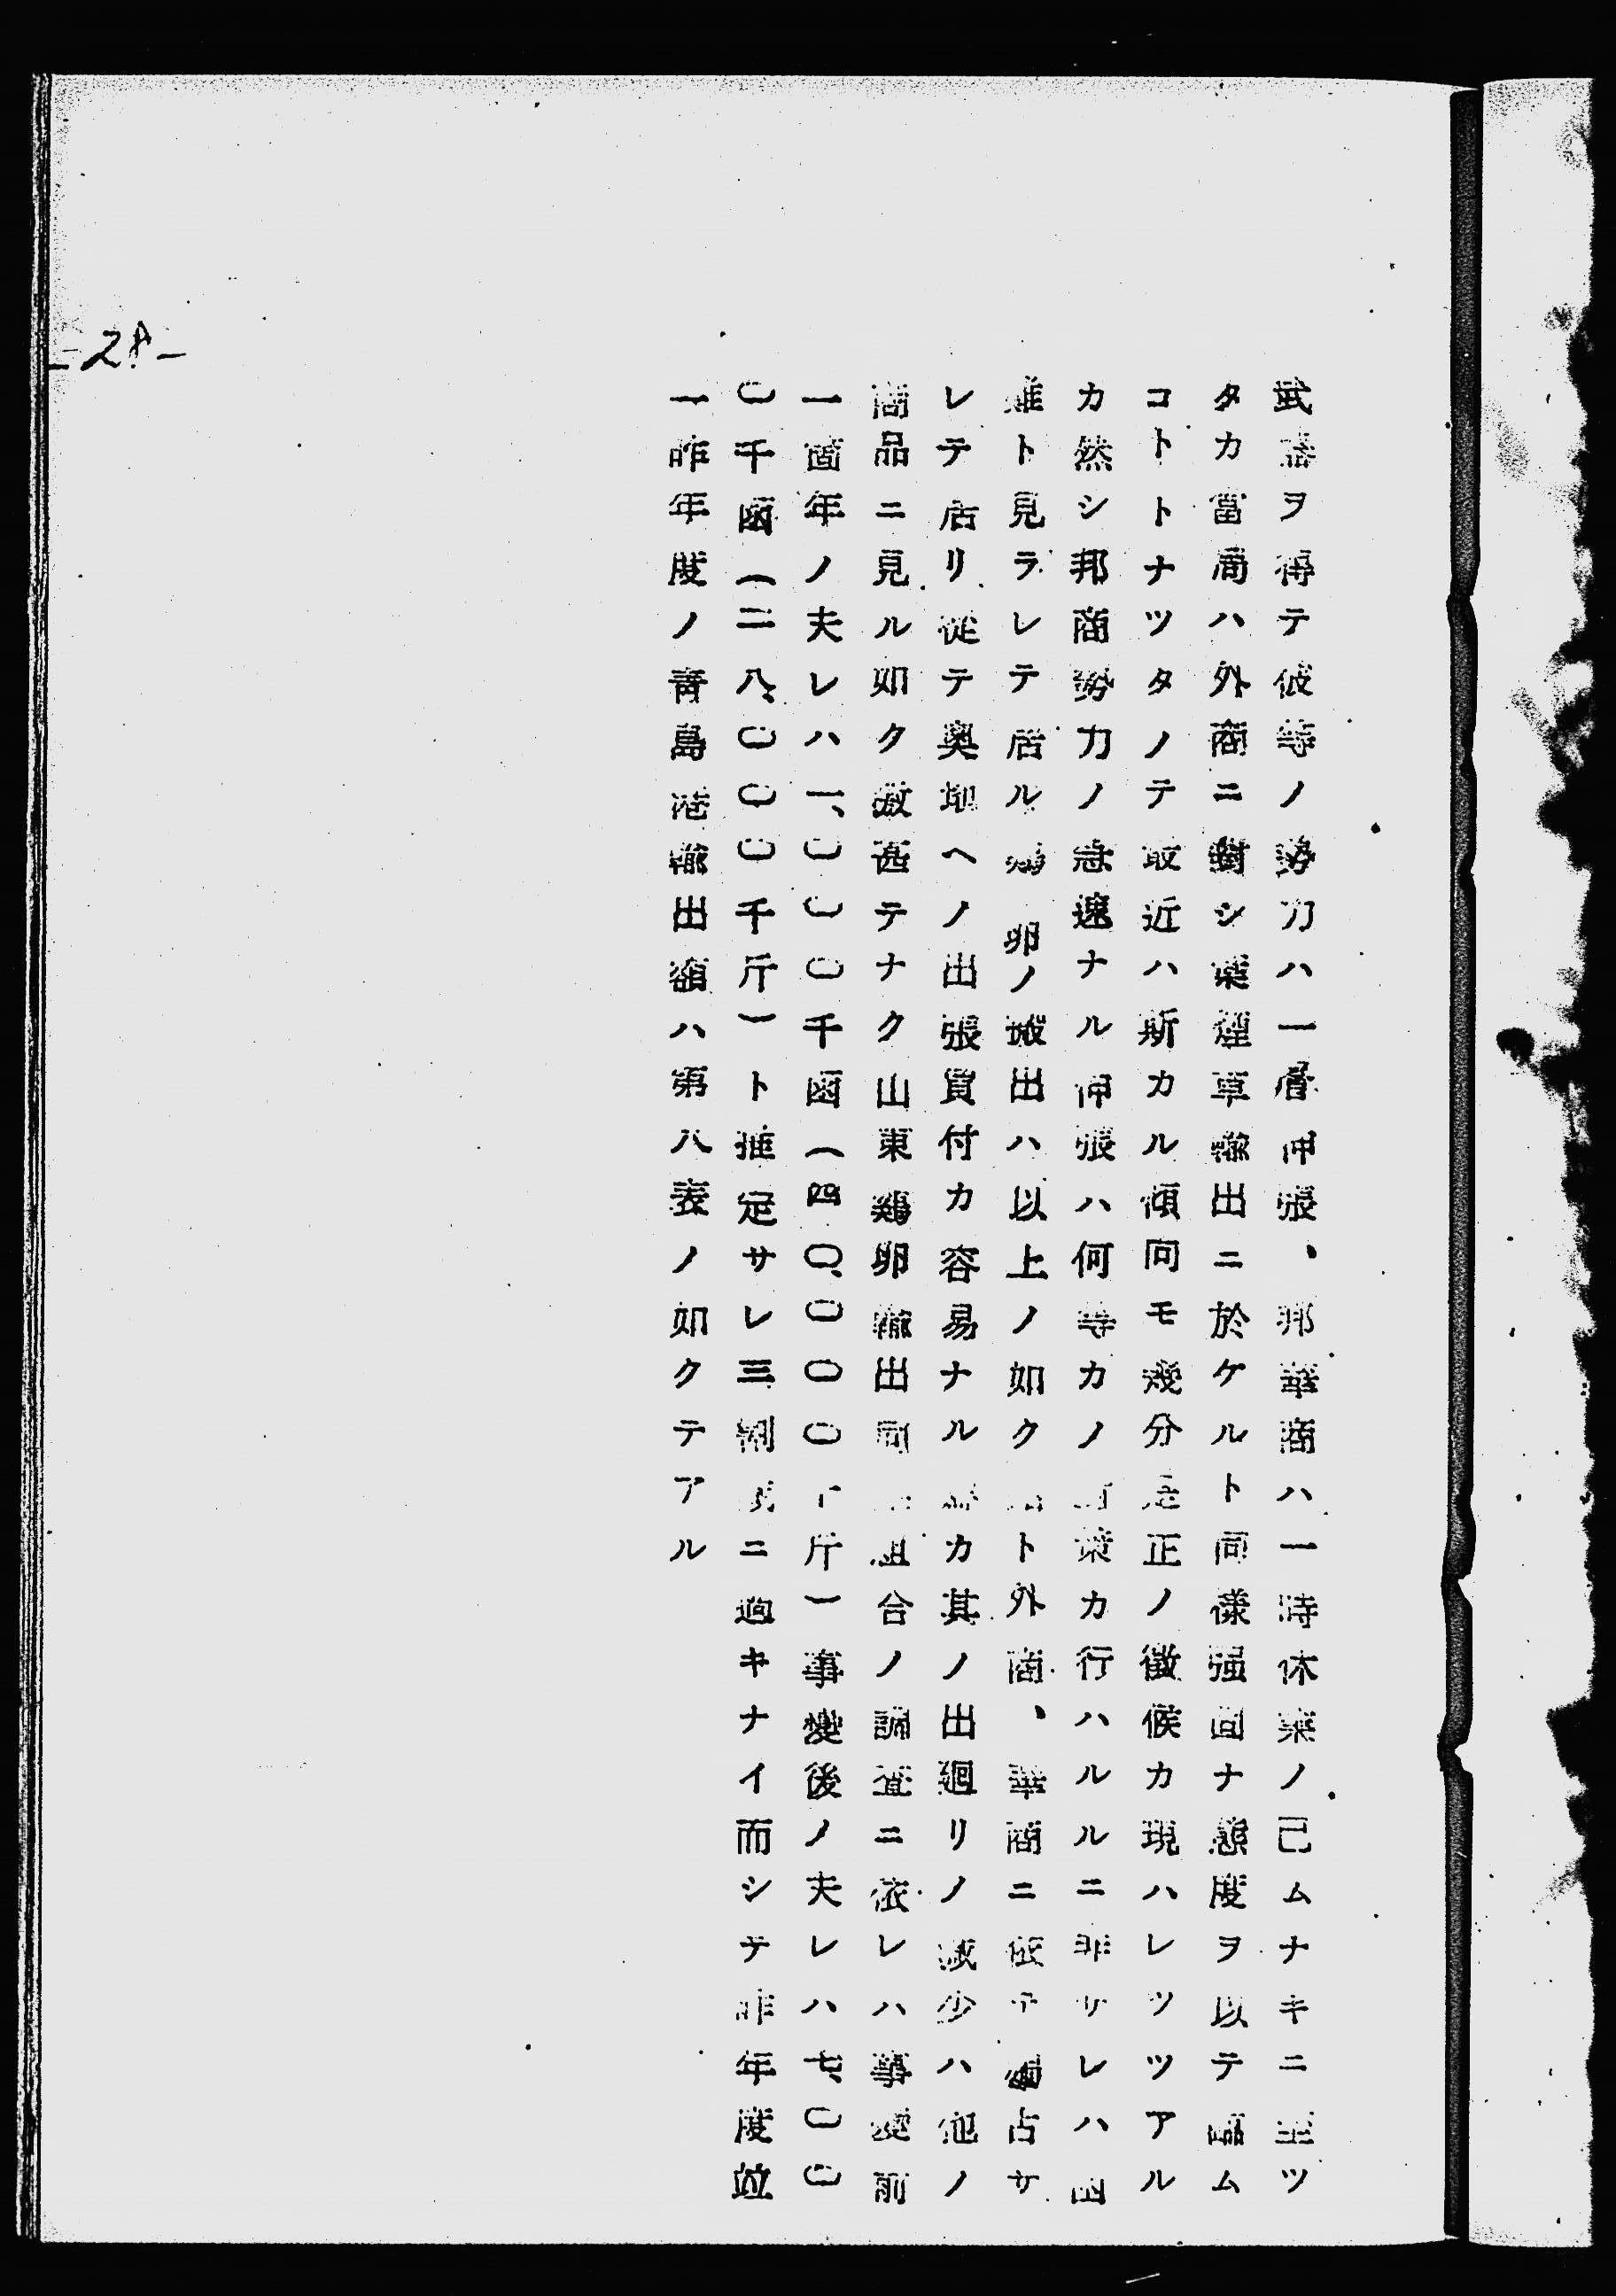 武器ヲ得テ彼等ノ勢力ハ一層伸張、邦華商ハ一時休業ノ已ムナキニ至ツ
タカ當局ハ外商ニ對シ葉煙草輸出ニ於ケルト同様强固ナ態度ヲ以テ臨ム
コトトナツタノテ最近ハ斯カル傾向モ幾分是正ノ徴候カ現ハレツツアル
カ然シ邦商勢力ノ急速ナル伸張ハ何等カノ策カ行ハルルニ非サレハ困
難ト見ラレテ居ル鶏卵ノ搬出ハ以上ノ如クト外商、華商ニ依テ獨占サ
レテ居リ從テ奥地ヘノ出張買付カ容易ナルカ其ノ出廻リノ減少ハ他ノ
商品ニ見ル如ク激甚テナク山東鷄卵輸出同組合ノ調査ニ依レハ事變前
一箇年ノ夫レハ一、〇〇〇千函(四〇、〇〇〇千斤)事變後ノ夫レハ七、〇〇
〇千函(二八、〇〇〇千斤)ト推定サレ三割減ニ過キナイ而シテ昨年度竝
一昨年度ノ靑島港輸出額ハ第八表ノ如クテアル
-28-